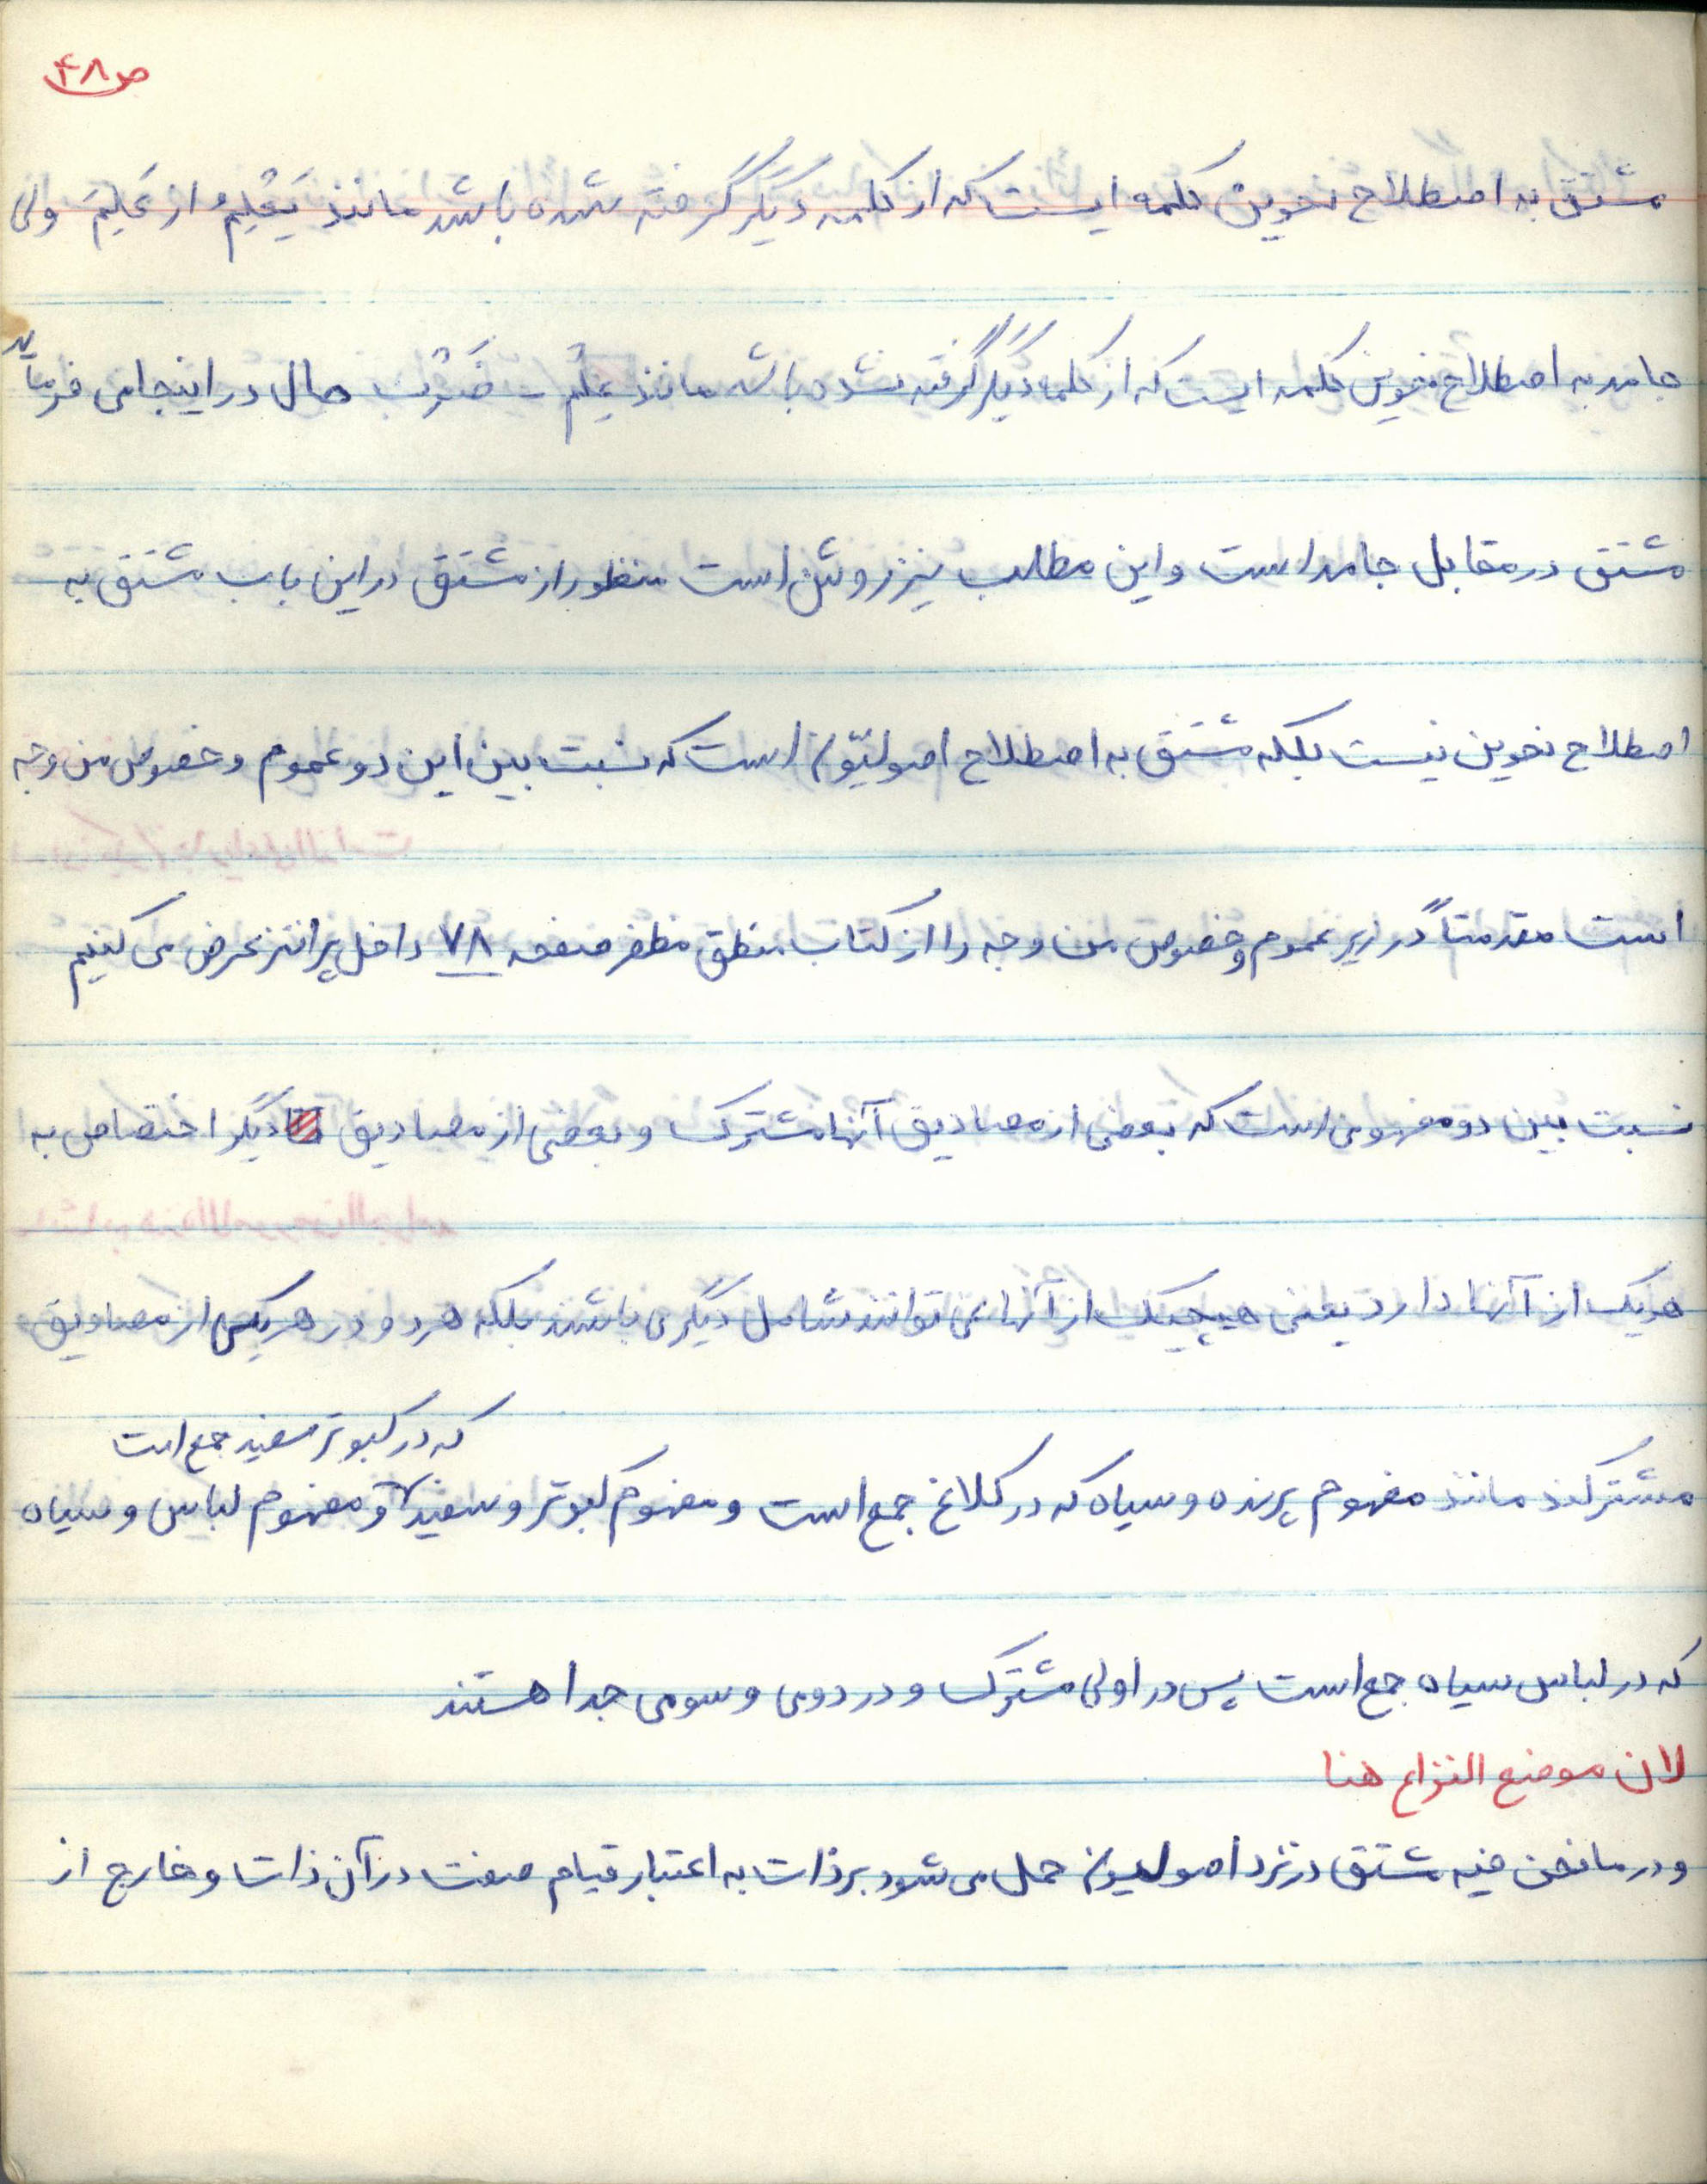 ص ۴۸
مشتق به اصطلاح نحوین کلمه ایست که از کلمه دیگر گرفته شده باشد مانند یَعْلِمُ از عَلِمَ ولی
جامد به اصطلاح نحوین کلمه ایست که از کلمه دیگر گرفته نشده باشد مانند عِلْم - ضَرْب حال در اینجا می فرماید
مشتق در مقابل جامد است و این مطلب نیز روشن است منظور از مشتق در این باب مشتق به
اصطلاح نحوین نیست بلکه مشتق به اصطلاح اصولیّون است که نسبت بین این دو عموم و خصوص من وجه
است مقدمتاً در زیر عموم و خصوص من وجه را از کتاب منطق مظفر صفحه ۷۸ داخل پرانتز عرض می کنیم
نسبت بین دو مفهومی است که بعضی از مصادیق آنها مشترک و بعضی از مصادیق دیگر اختصاص به
هریک از آنها دارد یعنی هیچیک از آنها نمی توانند شامل دیگری باشند بلکه هر دو در هریکی از مصادیق
که در کبوتر سفید جمع است
مشترکند مانند مفهوم پرنده و سیاه که در کلاغ جمع است و مفهوم کبوتر و سفید و مفهوم لباس و سیاه
که در لباس سیاه جمع است پس در اولی مشترک و در دومی و سومی جدا هستند
لان موضع النزاع هنا
و در ما نحن فیه مشتق در نزد اصولیون حمل می شود بر ذات به اعتبار قیام صفت در آن ذات و خارج از